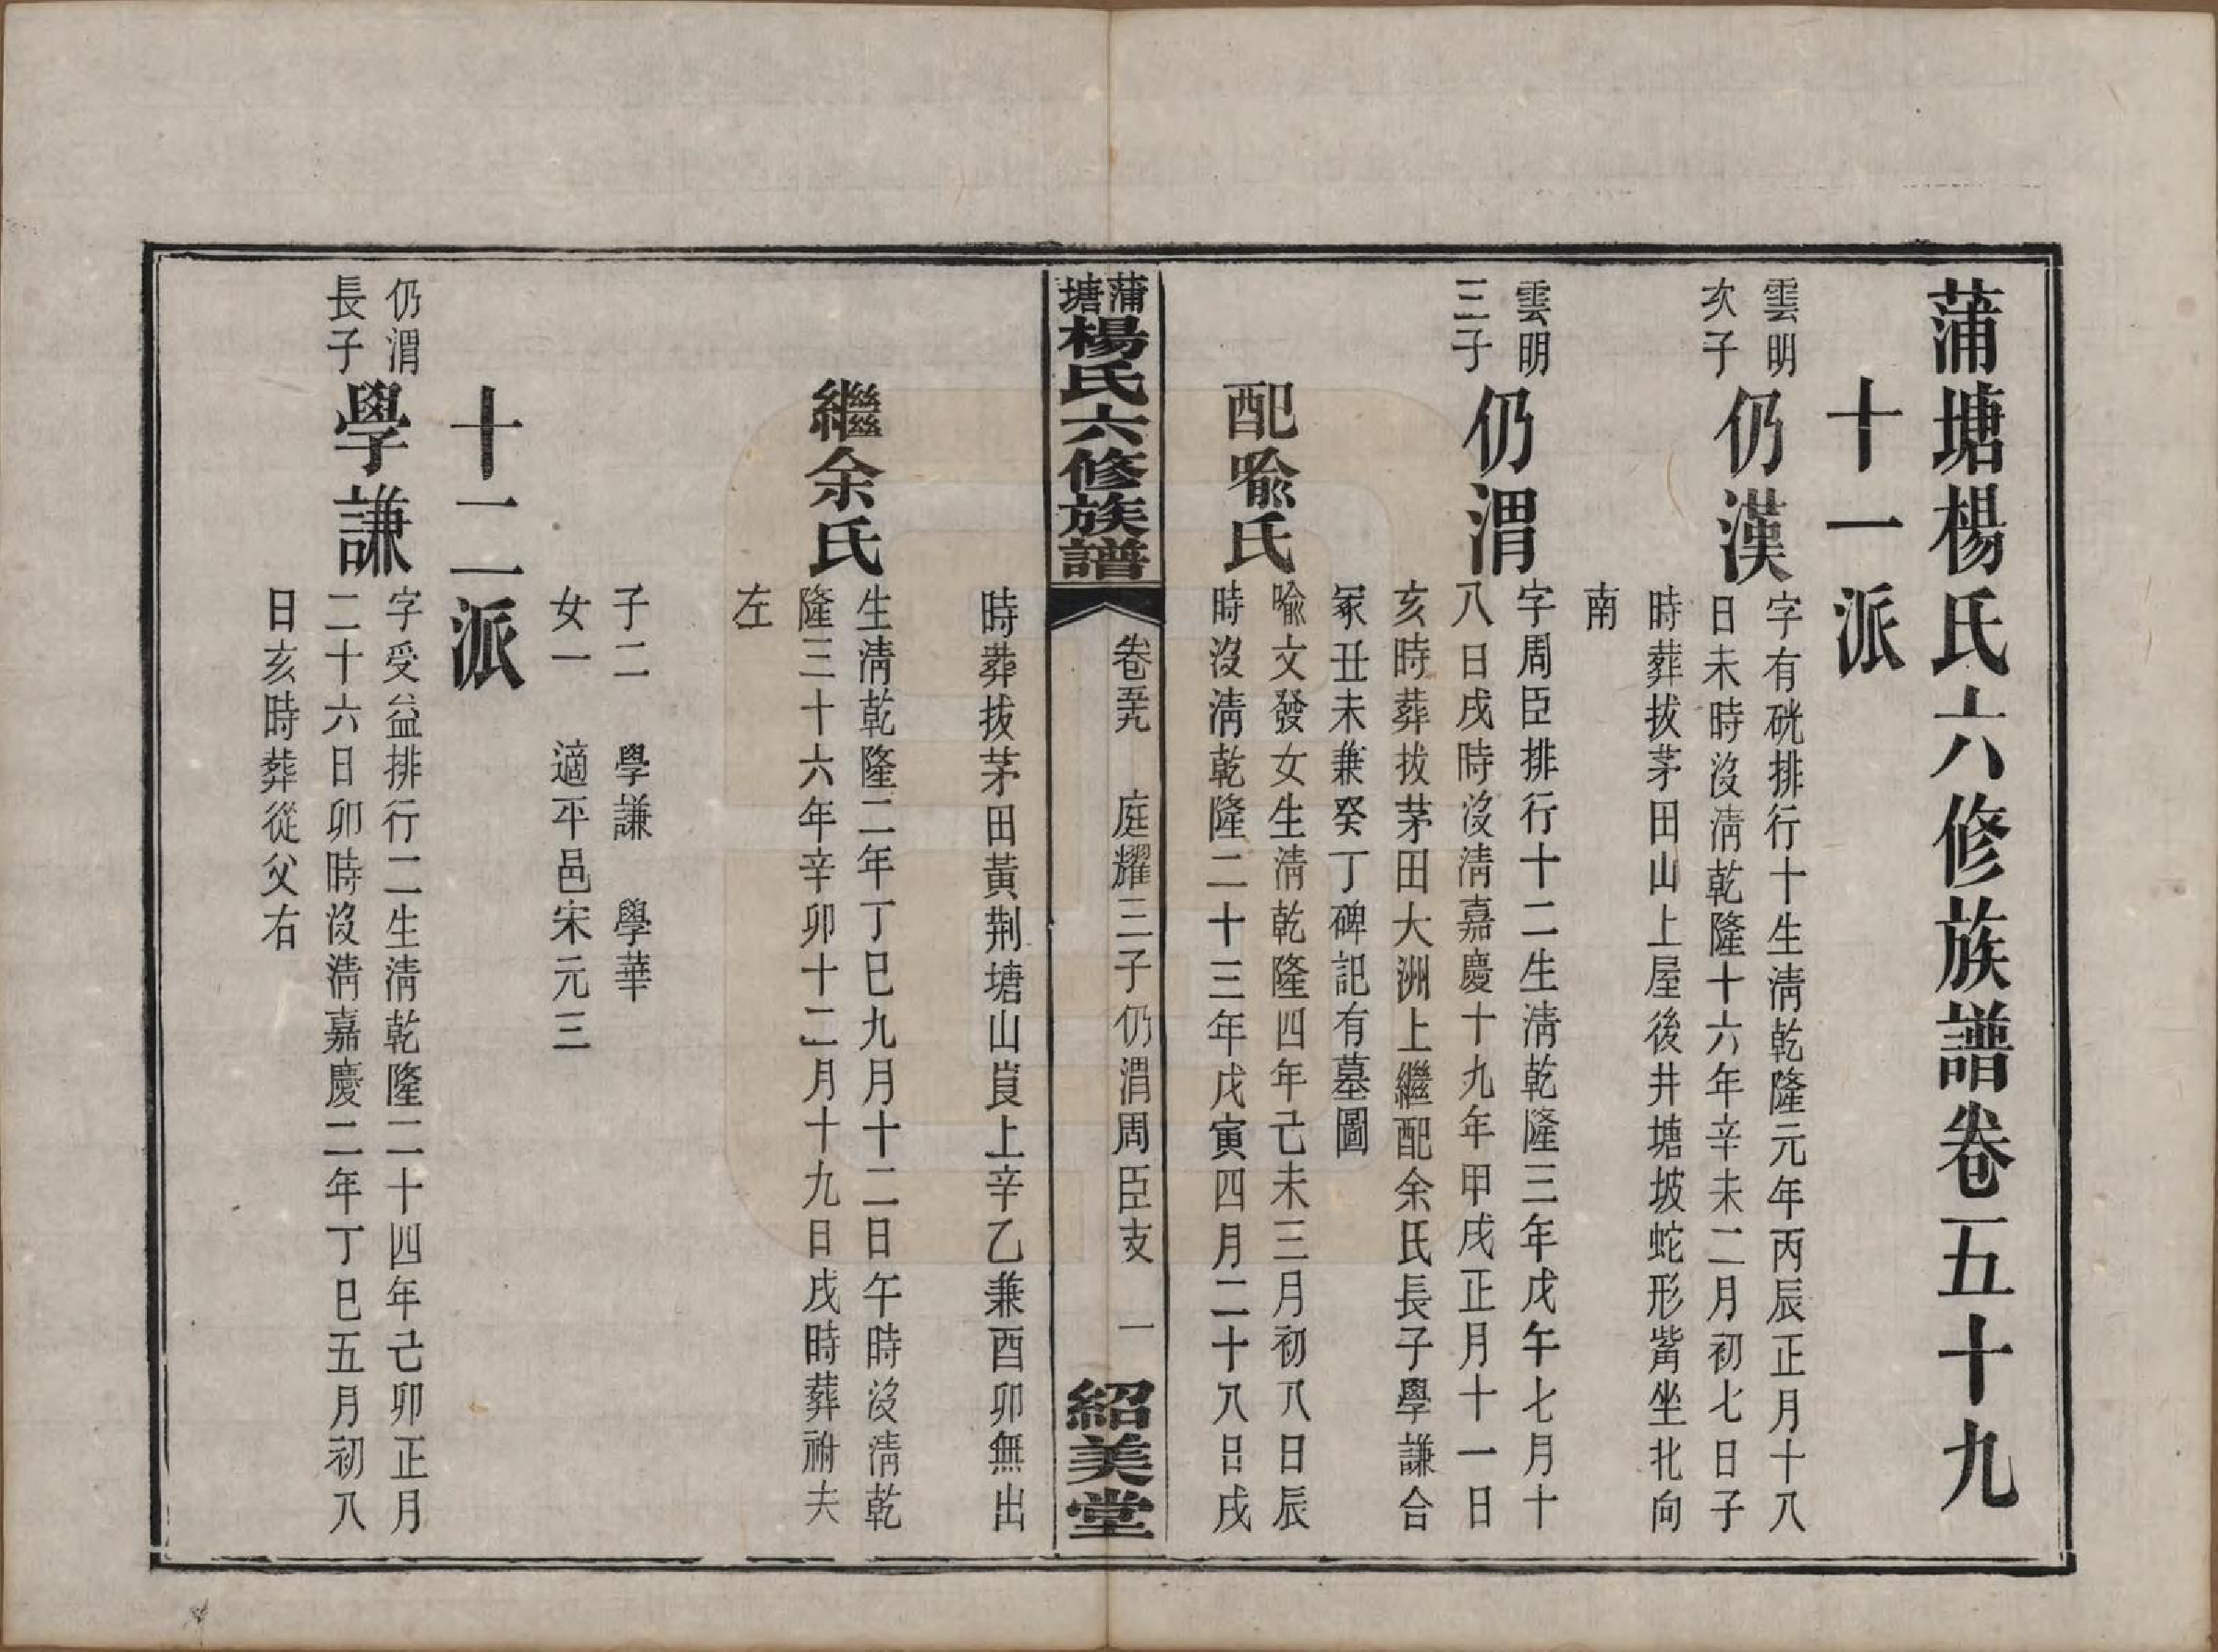 蒲塘楊氏六修族譜卷五十九
十一派
雲明
次子
仍漢
字有硄排行十生淸乾隆元年丙辰正月十八
日未時沒淸乾隆十六年辛未二月初七日子
時葬拔茅田山上屋後井塘坡蛇形觜坐北向
南
雲明
三子
仍渭
字周臣排行十二生淸乾隆三年戊午七月十
八日戌時沒淸嘉慶十九年甲戌正月十一日
亥時葬拔茅田大洲上繼配余氏長子學謙合
冢丑未兼癸丁碑記有墓圖
配喩氏
喩文發女生淸乾隆四年己未三月初八日辰
時沒淸乾隆二十三年戊寅四月二十八日戌
蒲塘楊氏六修族譜
卷五九 庭耀三子仍渭周臣支 一
紹美堂
時葬拔茅田黃荆塘山㟁上辛乙兼酉卯無出
繼余氏
生淸乾隆二年丁巳九月十二日午時沒淸乾
隆三十六年辛卯十二月十九日戌時葬祔夫
左
子二 學謙 學華
女一 適平邑宋元三
十二派
仍渭
長子
學謙
字受益排行二生淸乾隆二十四年己卯正月
二十六日卯時沒淸嘉慶二年丁巳五月初八
日亥時葬從父右